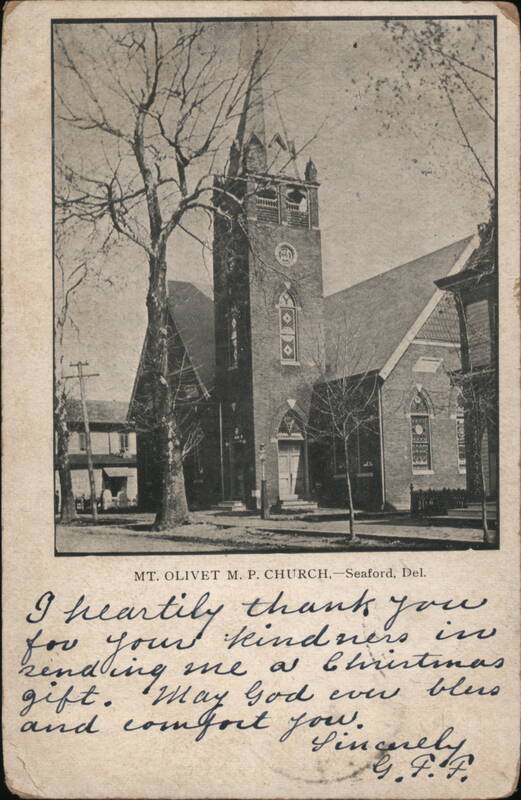 MT. OLIVET M. P. CHURCH,—Seaford, Del.
I heartily thank you
for your kindness in
sending me a Christmas
gift. May God ever bless
and comfort you.
Sincerely
G. F. F.